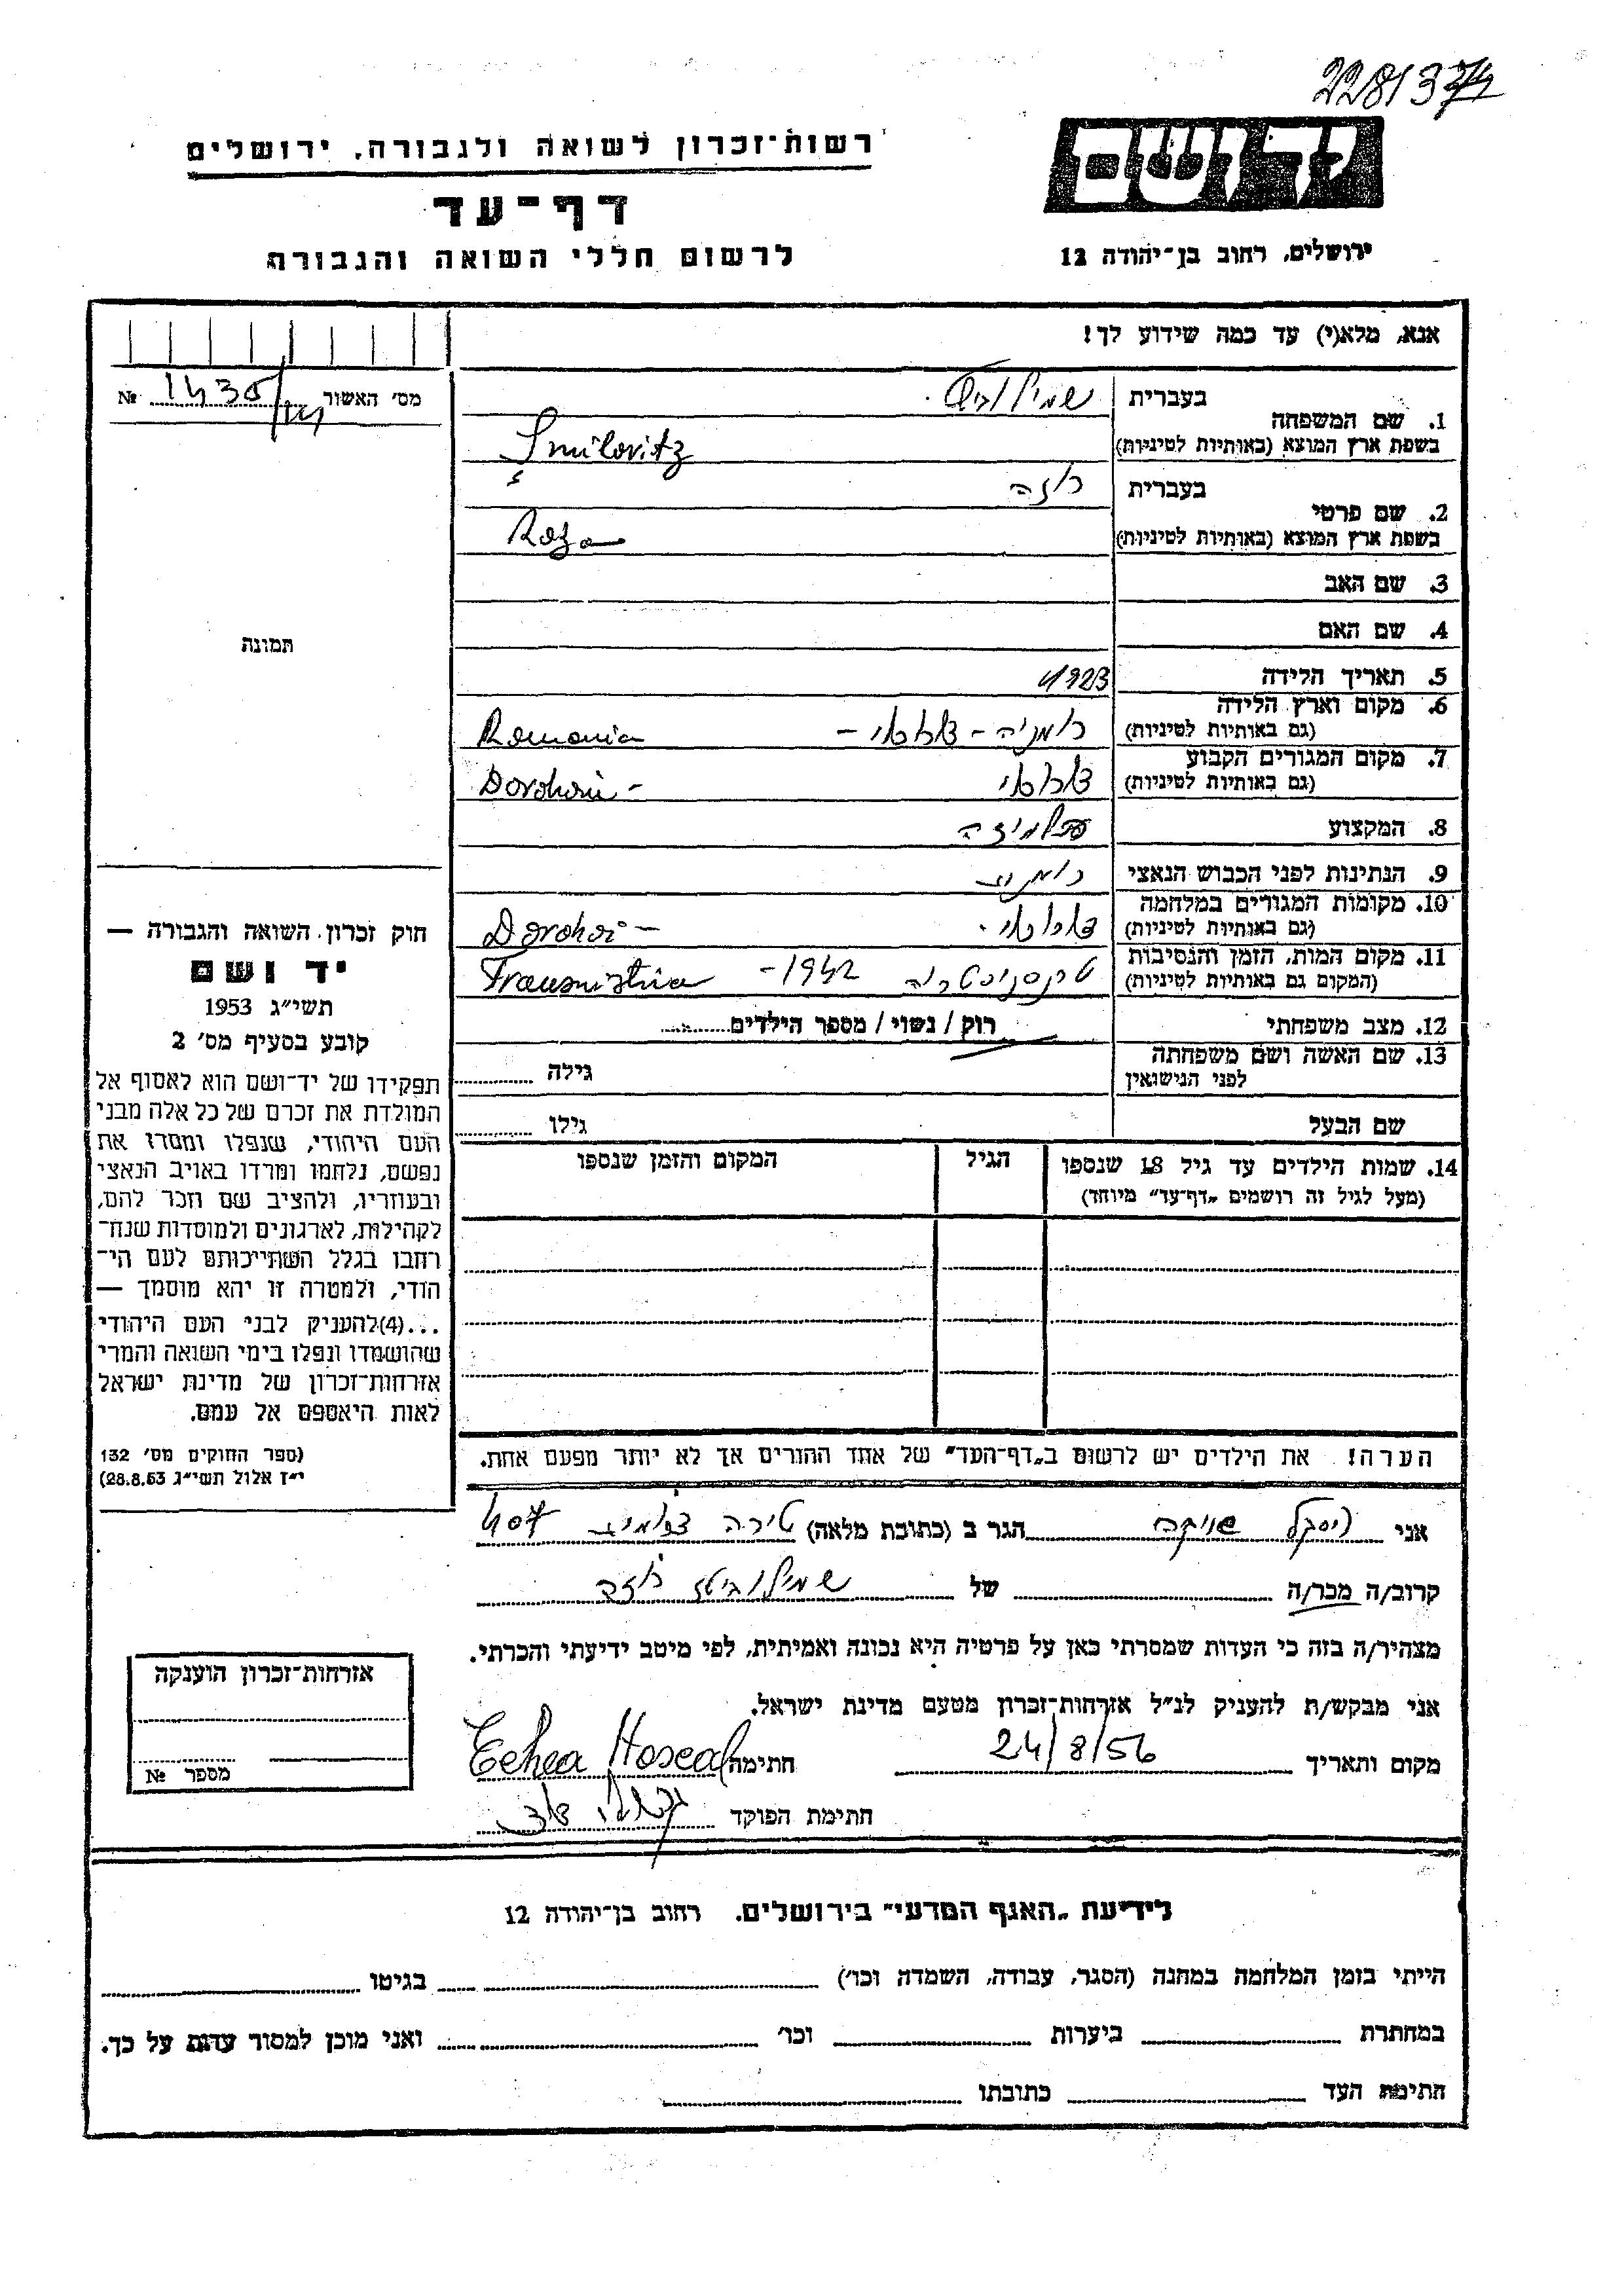 228137
רשות־זכרון לשואה ולגבורה, ירושלים
יד ושם
דף־עד
לרשום חללי השואה והגבורה
ירושלים, רחוב בן־יהודה 12
אנא, מלא(י) עד כמה שידוע לך!
מס׳ האשור № 1435
1. שם המשפחה
בעברית שמילוביץ
בשפת ארץ המוצא (באותיות לטיניות) Șmilovitz
2. שם פרטי
בעברית רוזה
בשפת ארץ המוצא (באותיות לטיניות) Roza
3. שם האב
4. שם האם
5. תאריך הלידה 1923
6. מקום וארץ הלידה
(גם באותיות לטיניות) רומניה - דורוהוי - Romania
7. מקום המגורים הקבוע
(גם באותיות לטיניות) דורוהוי Dorohoi -
8. המקצוע תלמידה
9. הנתינות לפני הכבוש הנאצי רומנית
10. מקומות המגורים במלחמה
(גם באותיות לטיניות) דורוהוי. Dorohoi -
11. מקום המות, הזמן והנסיבות
(המקום גם באותיות לטיניות) טרנסניסטריה 1942 - Transnistria
12. מצב משפחתי רוק / נשוי / מספר הילדים
13. שם האשה ושם משפחתה
לפני הנישואין גילה
שם הבעל גילו
14. שמות הילדים עד גיל 18 שנספו הגיל המקום והזמן שנספו
(מעל לגיל זה רושמים „דף־עד״ מיוחד)
הערה! את הילדים יש לרשום ב„דף־העד״ של אחד ההורים אך לא יותר מפעם אחת.
תמונה
חוק זכרון השואה והגבורה —
יד ושם
תשי״ג 1953
קובע בסעיף מס׳ 2
תפקידו של יד־ושם הוא לאסוף אל
המולדת את זכרם של כל אלה מבני
העם היהודי, שנפלו ומסרו את
נפשם, נלחמו ומרדו באויב הנאצי
ובעוזריו, ולהציב שם וזכר להם,
לקהילות, לארגונים ולמוסדות שנח־
רבו בגלל השתייכותם לעם הי־
הודי, ולמטרה זו יהא מוסמך —
...(4)להעניק לבני העם היהודי
שהושמדו ונפלו בימי השואה והמרי
אזרחות־זכרון של מדינת ישראל
לאות היאספם אל עמם.
(ספר החוקים מס׳ 132
י״ז אלול תשי״ג 28.8.53)
אני הגר ב (כתובת מלאה) טירה 407
קרוב/ה מכר/ה של שמילוביטז רוזה
מצהיר/ה בזה כי העדות שמסרתי כאן על פרטיה היא נכונה ואמיתית, לפי מיטב ידיעתי והכרתי.
אני מבקש/ת להעניק לנ״ל אזרחות־זכרון מטעם מדינת ישראל.
מקום ותאריך 24/8/56 חתימה
חתימת הפוקד
אזרחות־זכרון הוענקה
מספר №
לידיעת „האגף המדעי״ בירושלים. רחוב בן־יהודה 12
הייתי בזמן המלחמה במחנה (הסגר, עבודה, השמדה וכו׳) בגיטו
במחתרת ביערות וכו׳ ואני מוכן למסור עדות על כך.
חתימת העד כתובתו